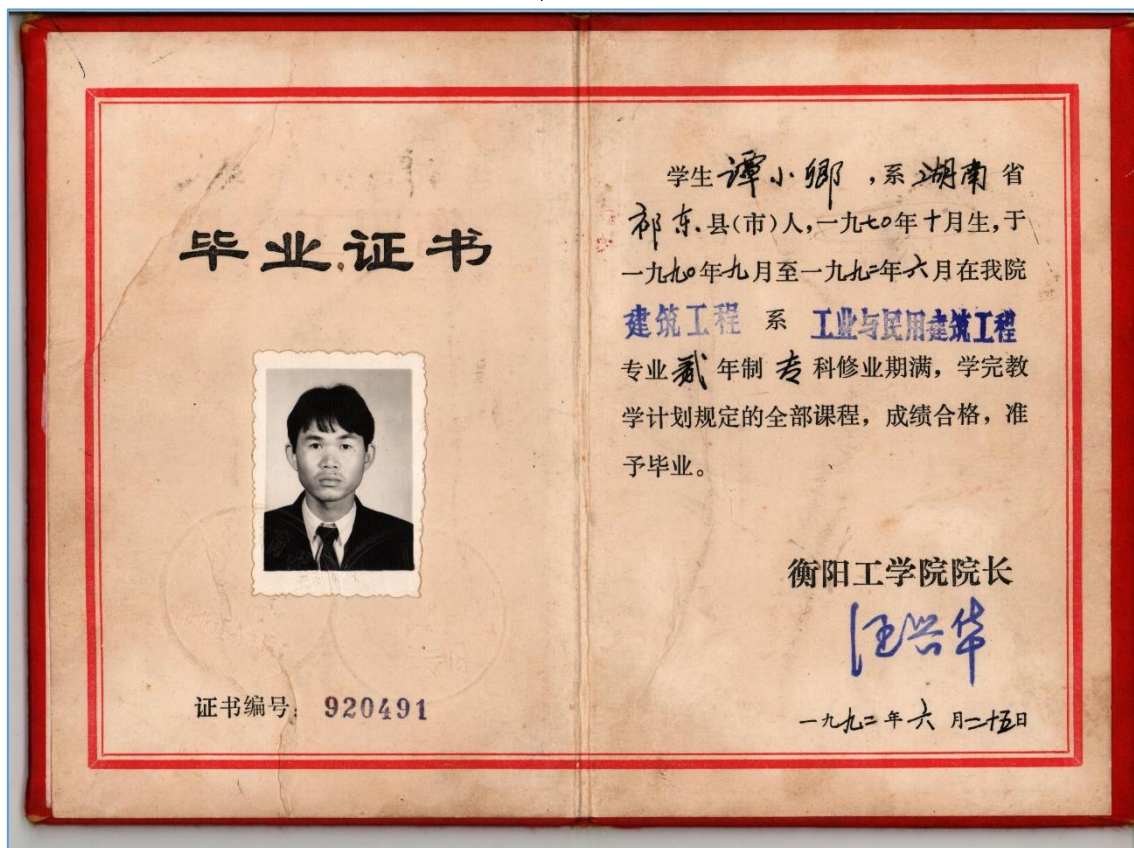 毕业证书
证书编号: 920491
学生谭小乡，系湖南省
祁东县(市)人，一九七0年十月生，于
一九九0年九月至一九九二年六月在我院
建筑工程 系 工业与民用建筑工程
专业贰年制专科修业期满，学完教
学计划规定的全部课程，成绩合格，准
予毕业。
衡阳工学院院长
汪兴华
一九九二年六月二十五日